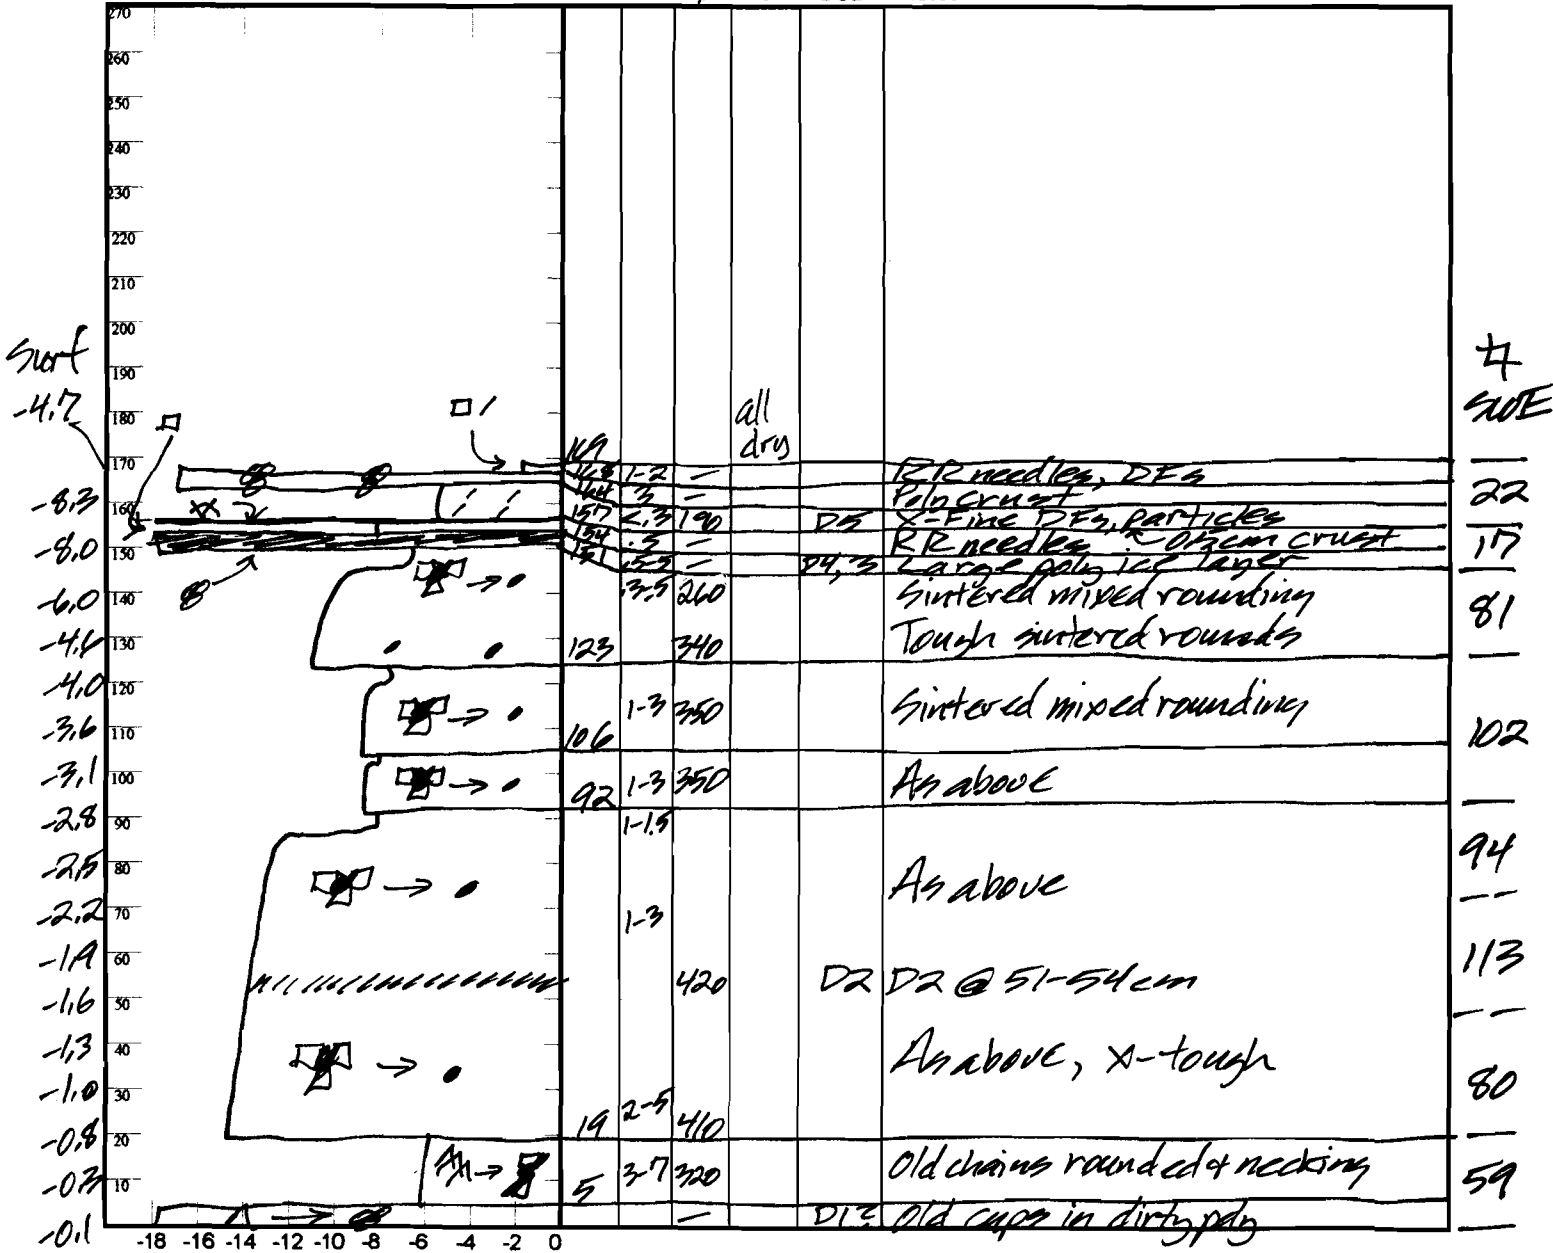 270
260
250
240
230
220
210
200
190
180
170
160
150
140
130
120
110
100
90
80
70
60
50
40
30
20
10
-18 -16 -14 -12 -10 -8 -6 -4 -2 0
Surf
-4.7
-8.3
-8.0
-6.0
-4.6
-4.0
-3.6
-3.1
-2.8
-2.5
-2.2
-1.9
-1.6
-1.3
-1.0
-0.8
-0.3
-0.1
all
dry
169
168 1-2 — RR needles, DFs
164 .3 — Poly crust
157 <.3 190 D5 X-Fine DFs, particles
154 .5 — RR needles crust
151 .5-5 — D4,3 Large poly ice layer
.3-.5 260 Sintered mixed rounding
123 340 Tough sintered rounds
106 1-3 350 Sintered mixed rounding
92 1-3 350 As above
1-1.5
As above
1-3
420 D2 D2 @ 51-54cm
As above, x-tough
19 2-5 410
5 3-7 320 Old chains rounded & necking
— D1? Old cups in dirty poly
#
SWE
22
17
81
102
94
113
80
59